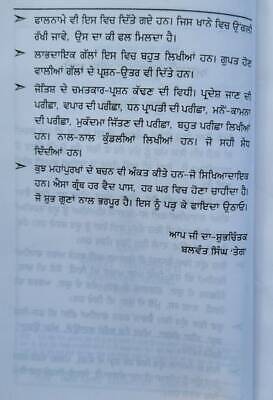 ➤ ਫਾਲਨਾਮੇ ਵੀ ਇਸ ਵਿਚ ਦਿੱਤੇ ਗਏ ਹਨ। ਜਿਸ ਖਾਨੇ ਵਿਚ ਉਂਗਲੀ
ਰੱਖੀ ਜਾਵੇ, ਉਸ ਦਾ ਕੀ ਫਲ ਮਿਲਦਾ ਹੈ।
➤ ਲਾਭਦਾਇਕ ਗੱਲਾਂ ਇਸ ਵਿਚ ਬਹੁਤ ਲਿਖੀਆਂ ਹਨ। ਗੁਪਤ ਹੋਣ
ਵਾਲੀਆਂ ਗੱਲਾਂ ਦੇ ਪ੍ਰਸ਼ਨ-ਉਤਰ ਵੀ ਦਿੱਤੇ ਹਨ।
➤ ਜੋਤਿਸ਼ ਦੇ ਚਮਤਕਾਰ-ਪ੍ਰਸ਼ਨ ਕੱਢਣ ਦੀ ਵਿਧੀ। ਪ੍ਰਦੇਸ਼ ਜਾਣ ਦੀ
ਪਰੀਛਾ, ਵਪਾਰ ਦੀ ਪਰੀਛਾ, ਧਨ ਪ੍ਰਾਪਤੀ ਦੀ ਪਰੀਛਾ, ਮਨੋ-ਕਾਮਨਾ
ਦੀ ਪਰੀਛਾ, ਮੁਕੱਦਮਾ ਜਿੱਤਣ ਦੀ ਪਰੀਛਾ, ਬਹੁਤ ਪਰੀਛਾ ਲਿਖੀਆਂ
ਹਨ। ਨਾਲ-ਨਾਲ ਕੁੰਡਲੀਆਂ ਲਿਖੀਆਂ ਹਨ, ਜੋ ਸਹੀ ਸੇਧ
ਦਿੰਦੀਆਂ ਹਨ।
➤ ਕੁਝ ਮਹਾਂਪੁਰਖਾਂ ਦੇ ਬਚਨ ਵੀ ਅੰਕਤ ਕੀਤੇ ਹਨ-ਜੋ ਸਿਖਿਆਦਾਇਕ
ਹਨ। ਐਸਾ ਗ੍ਰੰਥ ਹਰ ਵੈਦ ਪਾਸ, ਹਰ ਘਰ ਵਿਚ ਹੋਣਾ ਚਾਹੀਦਾ ਹੈ।
ਜੋ ਸ਼ੁਭ ਗੁਣਾਂ ਨਾਲ ਭਰਪੂਰ ਹੈ। ਇਸ ਨੂੰ ਪੜ੍ਹ ਕੇ ਫਾਇਦਾ ਉਠਾਓ।
ਆਪ ਜੀ ਦਾ-ਸ਼ੁਭਚਿੰਤਕ
ਬਲਵੰਤ ਸਿੰਘ 'ਤੇਗ'